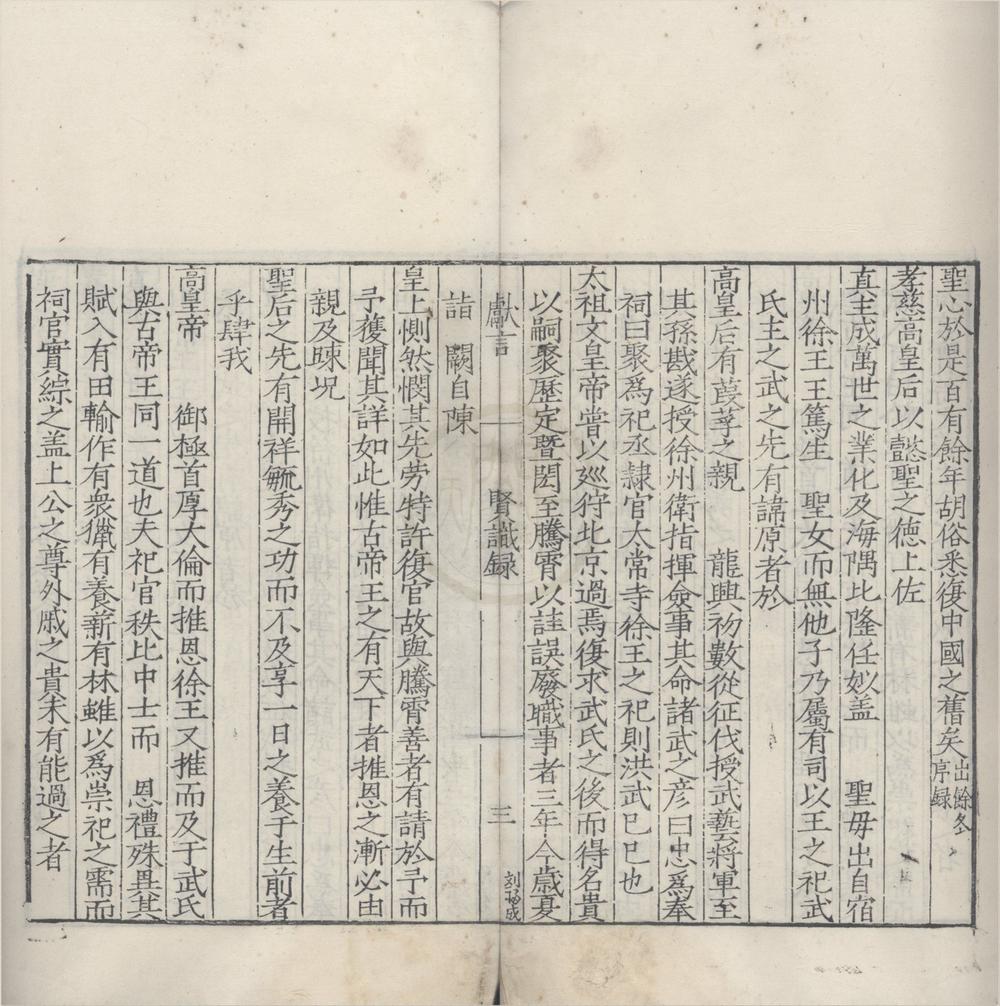 聖心於是百有餘年胡俗悉復中國之舊矣出餘冬序録
孝慈高皇后以懿聖之德上佐
真主成萬世之業化及海隅比隆任姒盖　聖毋出自宿
州徐王王篤生　聖女而無他子乃屬有司以王之祀武
氏主之武之先有諱原者於
高皇后有葭莩之親　龍興初數從征伐授武藝將軍至
其孫戡遂授徐州衛指揮僉事其命諸武之彦曰忠爲奉
祠曰聚爲祀丞隷官太常寺徐王之祀則洪武已巳也
太祖文皇帝甞以廵狩北京過焉復求武氏之後而得名貴
以嗣聚歷定暨閎至騰霄以詿誤廢職事者三年今歳夏
獻言　賢識録　三　刻楊成
詣　闕自陳
皇上惻然憫其先劳特許復官故與騰霄善者有請於予而
予獲聞其詳如此惟古帝王之有天下者推恩之漸必由
親及踈况
聖后之先有開祥毓秀之功而不及享一日之養于生前者
乎肆我
高皇帝　御極首厚大倫而推恩徐王又推而及于武氏
與古帝王同一道也夫祀官秩比中士而　恩禮殊異其
賦入有田輸作有衆獵有養薪有林雖以爲崇祀之需而
祠官實綜之盖上公之尊外戚之貴未有能過之者